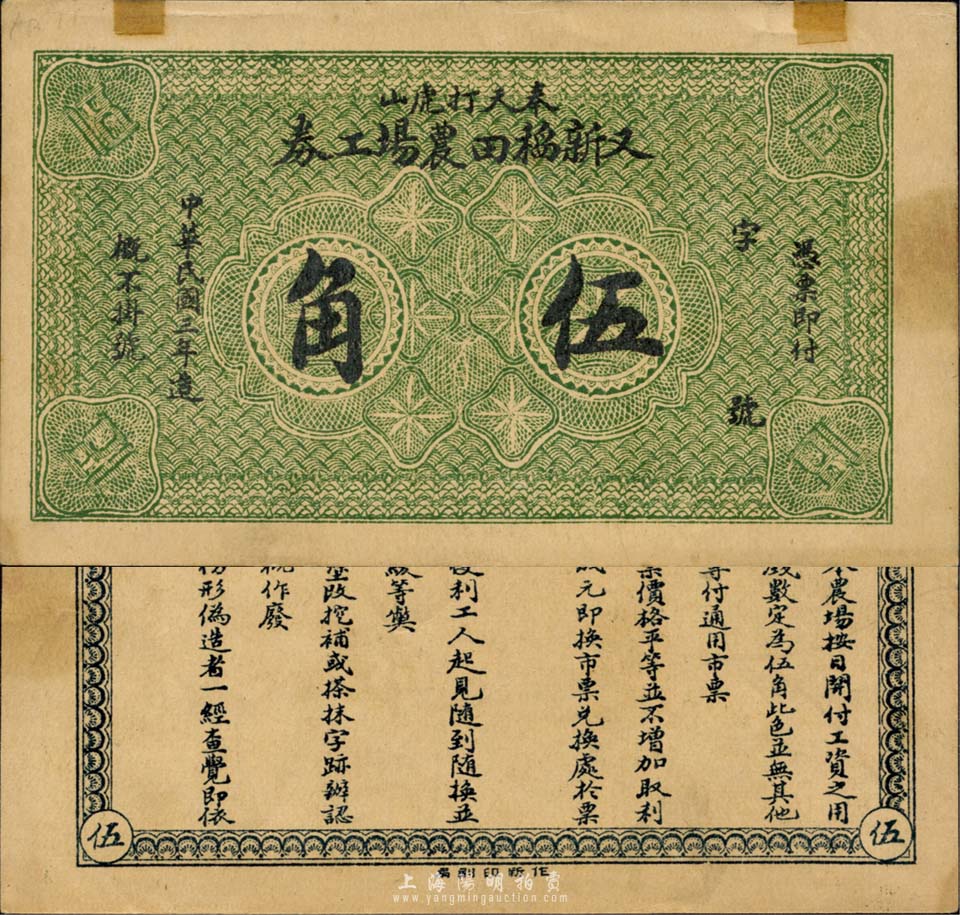 奉天打虎山
又新稻田農場工券
憑票即付
字
號
伍角
中華民國三年造
概不掛號
農場按日開付工資之用
錢數定為伍角此色並無其他
付通用市票
票價格平等並不增加取利
元即換市票兌換處於票
利工人起見隨到隨換並
等獘
塗改挖補或搽抹字跡難認
作廢
形偽造者一經查覺即依
伍
伍
作新印刷局
上海陽明拍賣
www.yangmingauction.com